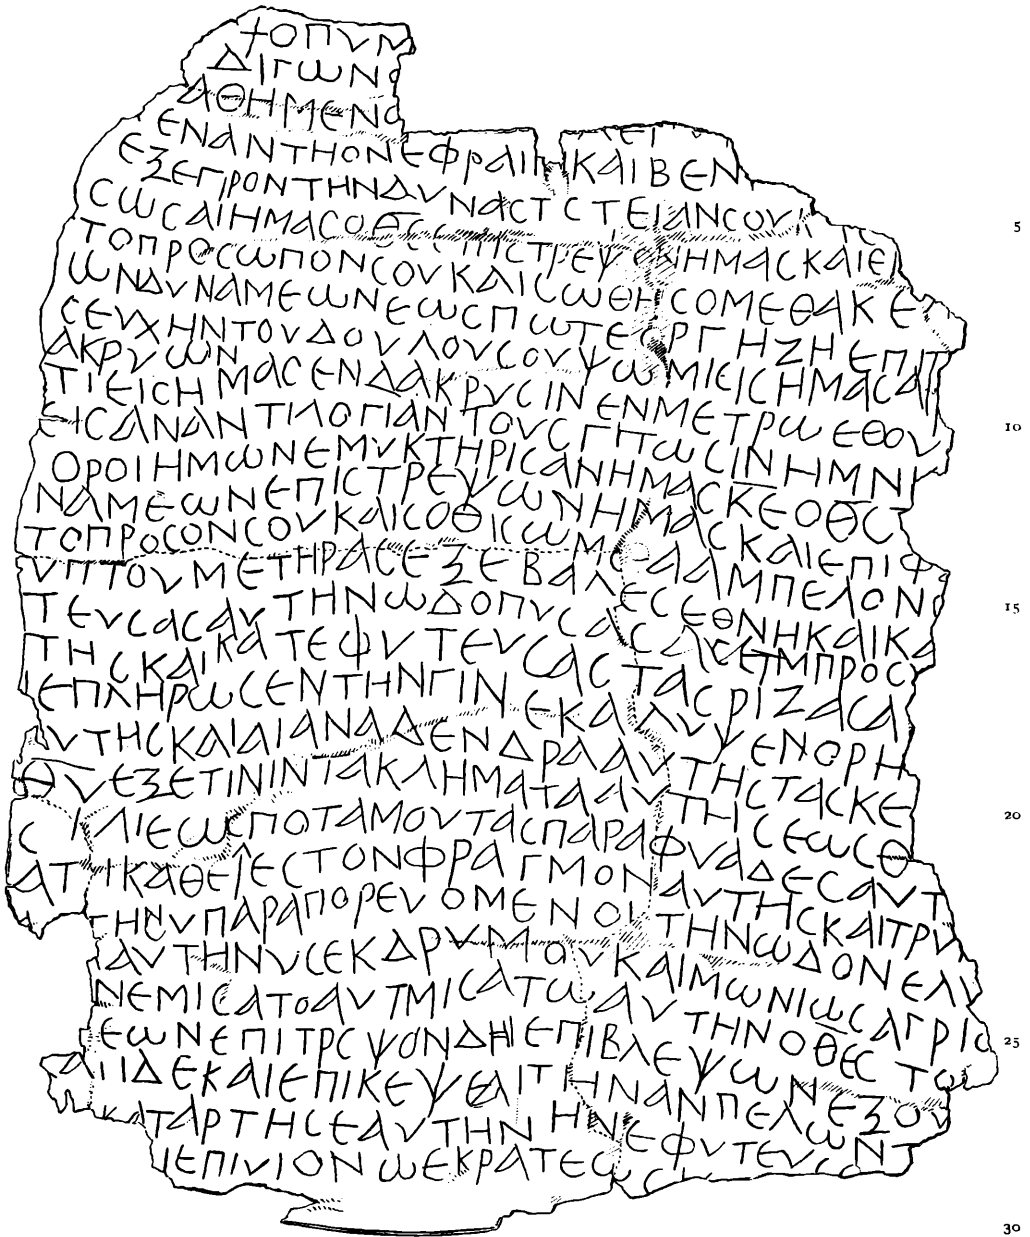 ϯΟΠΥΜ
ΔΙΓΩΝΟ
ΑΘΗΜΕΝΟ
ΕΝΑΝΤΗΟΝΕΦΡΑΙΜ ΚΑΙΒΕΝ
ΕΞΕΓΙΡΟΝΤΗΝΔΥΝΑCΤCΤΕΙΑΝCΟΥ
CΩCΑΙΗΜΑCΟΘCΕΠΙCΤΡΕΨΟΝΗΜΑCΚΑΙΕΙ
ΤΟΠΡΟCΩΠΟΝCΟΥΚΑΙCΩΘΗCΟΜΕΘΑΚΕ
ΩΝΔΥΝΑΜΕΩΝΕΩCΠΩΤΕΟΡΓΗΖΗΕΠΙΤ
CΕΥΧΗΝΤΟΥΔΟΥΛΟΥCΟΥΨΩΜΙΕΙCΗΜΑCΑΡ
ΔΑΚΡΥΩΝ
ΤΙΕΙCΗΜΑCΕΝΔΑΚΡΥCΙΝΕΝΜΕΤΡΩΕΘΟΥ
ΕΙCΑΝΑΝΤΙΛΟΓΙΑΝΤΟΥCΓΙΤΩCΙΝΗΜΝΙ
ΟΡΟΙΗΜΩΝΕΜΥΚΤΗΡΙCΑΝΗΜΑCΚΕΟΘC
ΝΑΜΕΩΝΕΠΙCΤΡΕΨΩΝΗΜΑCΚΑΙΕΠΙΦ
ΤΟΠΡΟCΟΝCΟΥΚΑΙCΟΘΙCΩΜΕΑΑΜΠΕΛΟΝΟ
ΥΠΤΟΥΜΕΤΗΡΑCΕΞΕΒΑΛΕCΕΘΝΗΚΑΙΚΑ
ΤΕΥCΑCΑΥΤΗΝΩΔΟΠΥCΑCΑΥCΕΤΜΠΡΟC
ΤΗCΚΑΙΚΑΤΕΦΥΤΕΥCΑCΤΑCΡΙΖΑCΑ
ΙΕΠΛΗΡΩCΕΝΤΗΝΓΙΝΕΚΑΛΥΨΕΝΟΡΗ
ΑΥΤΗCΚΑΙΑΙΑΝΑΔΕΝΔΡΑΑΥΤΗCΤΑCΚΕ
ΘΥΕΞΕΤΙΝΙΝΤΑΚΛΗΜΑΤΑΑΥΤΗCΕΩCΘ
C ΙΛΙΕΩCΠΟΤΑΜΟΥΤΑCΠΑΡΑΦΥΑΔΕCΑΥΤ
ΑΤΙΚΑΘΕΙΕCΤΟΝΦΡΑΓΜΟΝΑΥΤΗCΚΑΙΤΡΥ
ΤΗΝΥΠΑΡΑΠΟΡΕΥΟΜΕΝΟΙΤΗΝΩΔΟΝΕΛΥ
ΑΥΤΗΝΥCΕΚΔΡΥΜΟΥΚΑΙΜΩΝΙΩCΑΓΡΙΟ
ΝΕΜΙCΑΤΟΑΥΤΜΙCΑΤΩΑΥΤΗΝΟΘΕCΤΩ
ΕΩΝΕΠΙΤΡCΨΟΝΔΗΙΕΠΙΒΛΕΨΩΝΕΞΟΥ
ΙΔΕΚΑΙΕΠΙΚΕΨΕΑΙΤΗΝΑΝΠΕΛΩΝΤ
ΤΑΡΤΗCΕΑΥΤΗΝΗΝΕΦΥΤΕΥC
ΙΕΠΙΥΙΟΝΩΕΚΡΑΤΕΩC
5
10
15
20
25
30